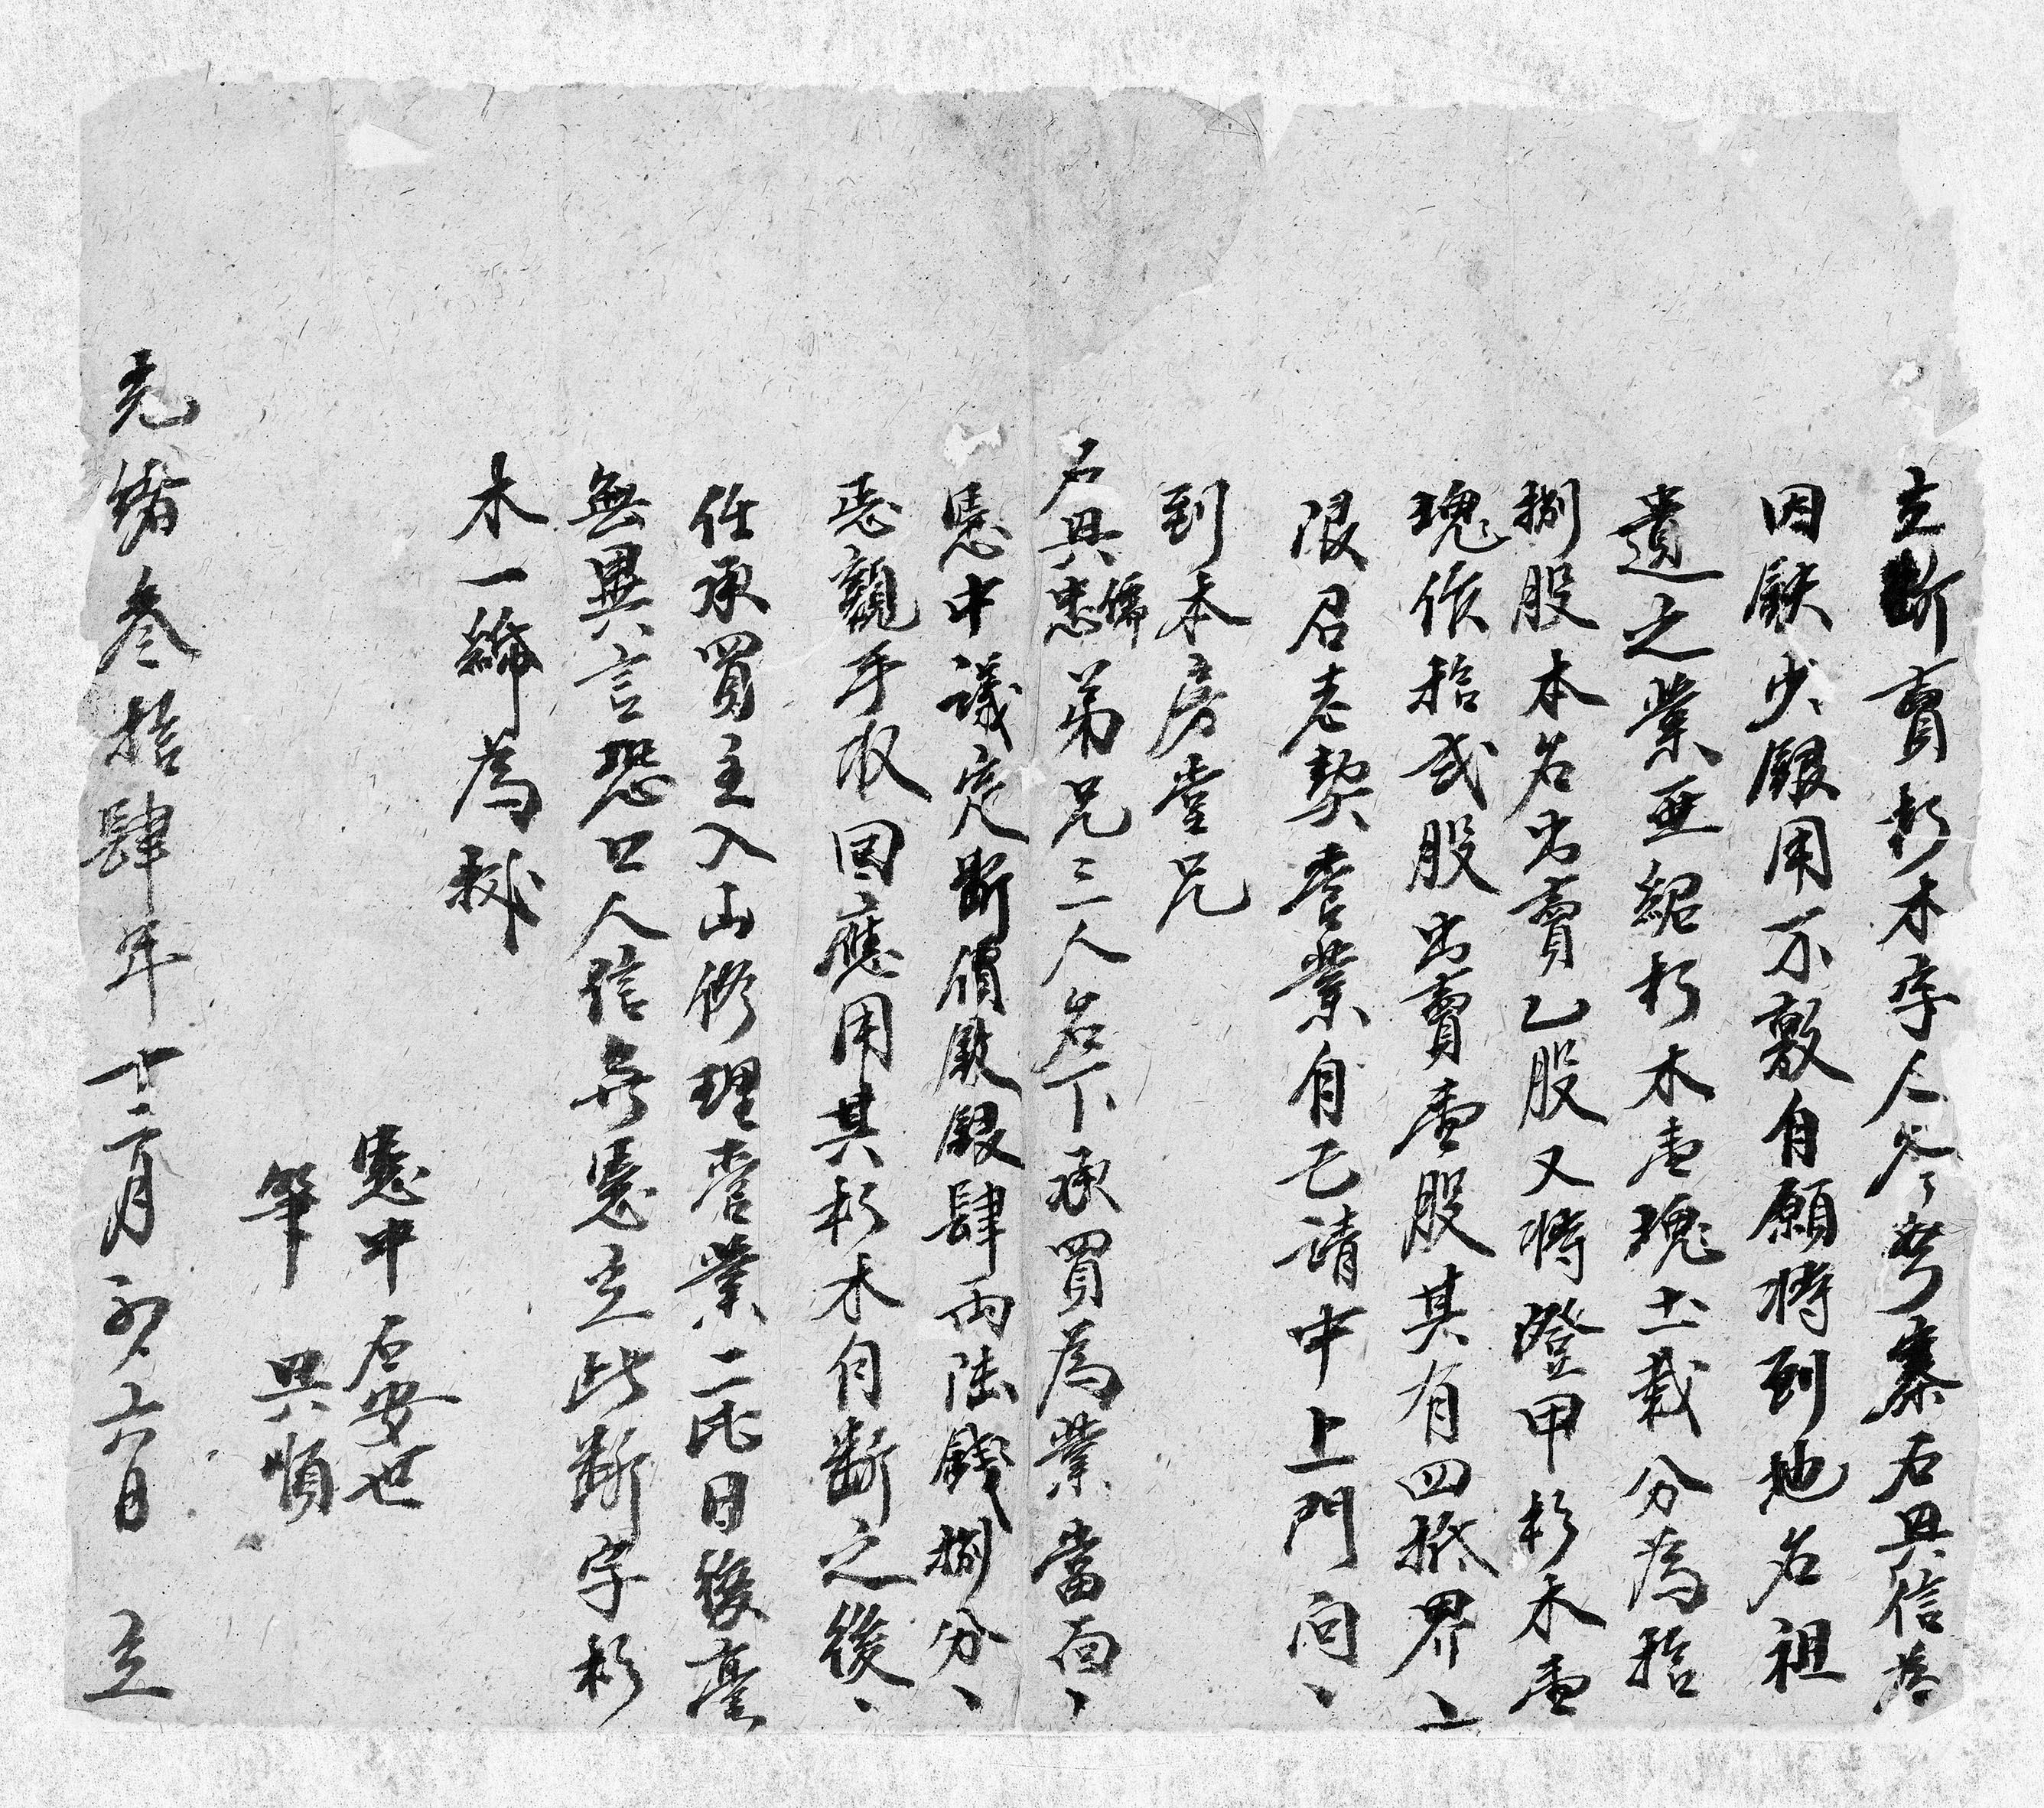 立斷賣杉木字人岑孛寨石具信為
因缺少銀用不敷自願將到地名祖
遺之業亜䋎杉木壹塊土栽分為拾
捌股本名出賣乙股又將澄甲杉木壹
塊作拾弍股出賣壹股其有四抵界止
限召老契管業自己請中上門问丶
到本房堂兄
石具忠儒弟兄三人名下承買為業當面丶
憑中議定斷價紋銀肆両陆錢捌分丶
悉親手收回應用其杉木自斷之後丶
任承買主入山修理管業二比日後毫
無異言恐口人信無憑立此斷字杉
木一紙為㧞
憑中 石安世
筆 具順
光緒叁拾肆年十二月初六日 立